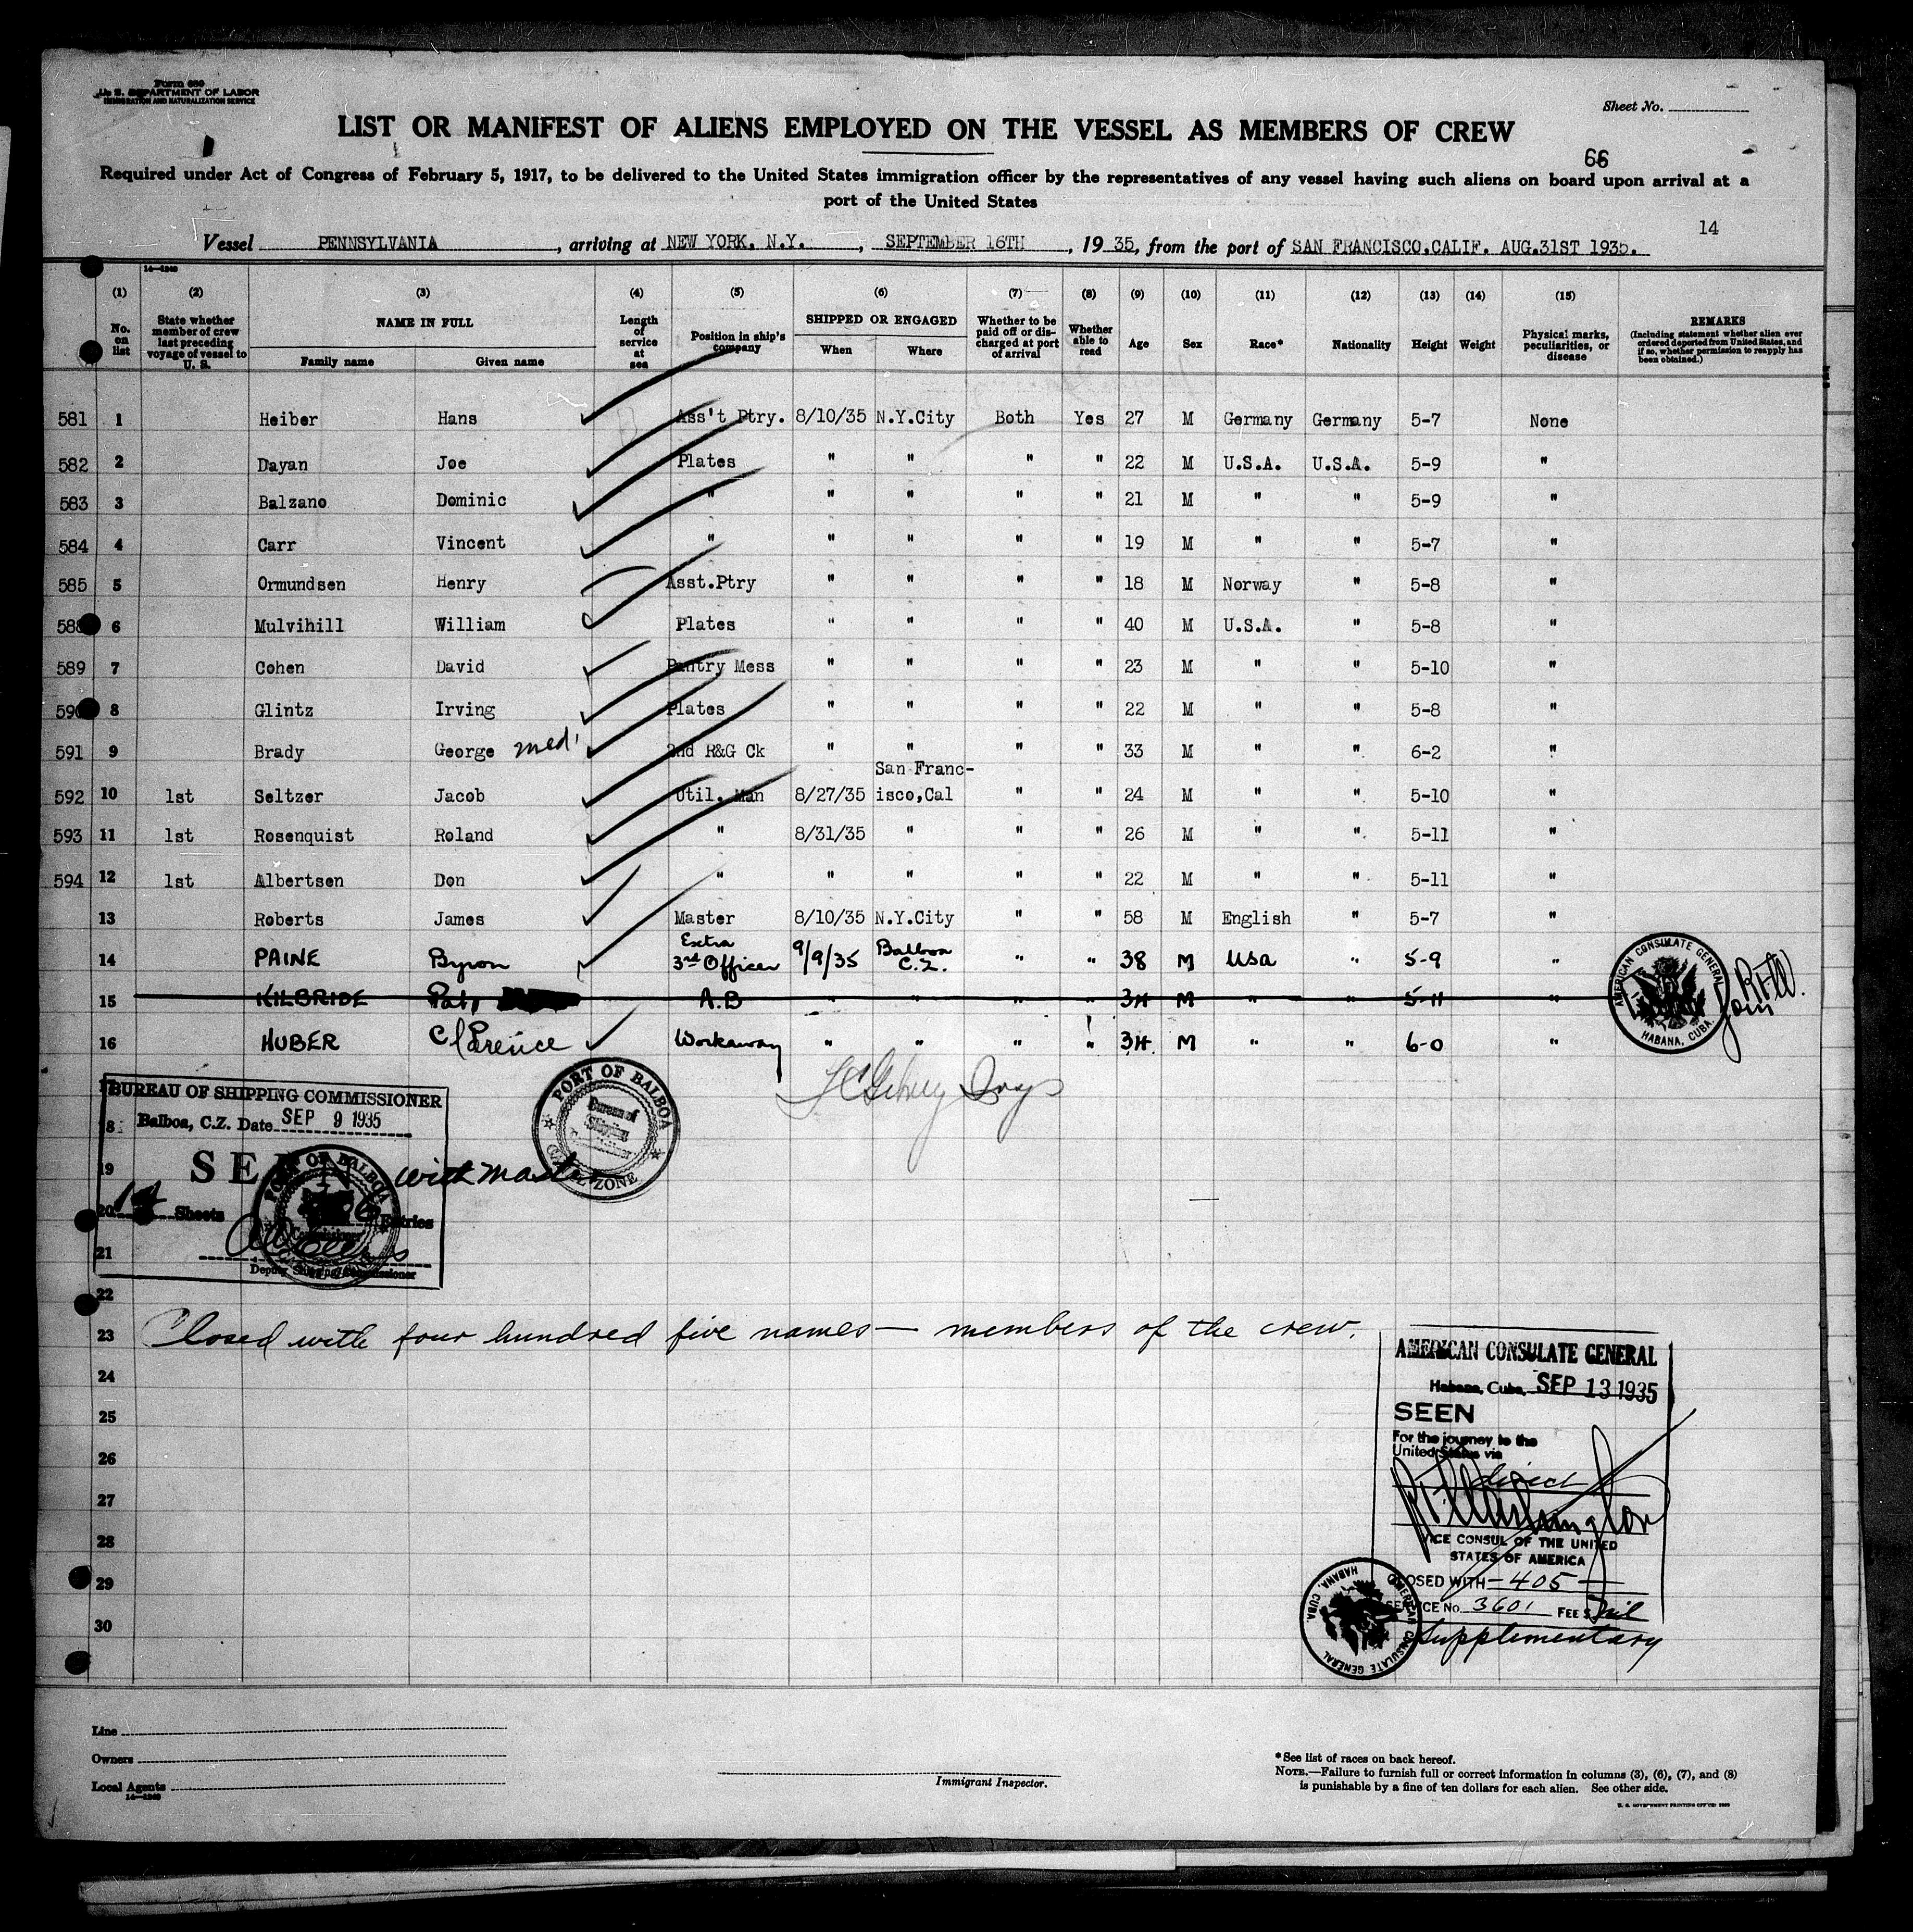 Form 680
U. S. DEPARTMENT OF LABOR
IMMIGRATION AND NATURALIZATION SERVICE
Sheet No.
LIST OR MANIFEST OF ALIENS EMPLOYED ON THE VESSEL AS MEMBERS OF CREW
66
Required under Act of Congress of February 5, 1917, to be delivered to the United States immigration officer by the representatives of any vessel having such aliens on board upon arrival at a
port of the United States
14
Vessel PENNSYLVANIA, arriving at NEW YORK, N.Y., SEPTEMBER 16TH, 19 35, from the port of SAN FRANCISCO,CALIF. AUG.31ST 1935.
14—1240
(1) (2) (3) (4) (5) (6) (7) (8) (9) (10) (11) (12) (13) (14) (15)
No. on list State whether member of crew last preceding voyage of vessel to U. S. NAME IN FULL Family name Given name Length of service at sea Position in ship's company SHIPPED OR ENGAGED When Where Whether to be paid off or discharged at port of arrival Whether able to read Age Sex Race* Nationality Height Weight Physical marks, peculiarities, or disease REMARKS (Including statement whether alien ever ordered deported from United States, and if so, whether permission to reapply has been obtained.)
581 1 Heiber Hans Ass't Ptry. 8/10/35 N.Y.City Both Yes 27 M Germany Germany 5-7 None
582 2 Dayan Joe Plates " " " " 22 M U.S.A. U.S.A. 5-9 "
583 3 Balzano Dominic " " " " " 21 M " " 5-9 "
584 4 Carr Vincent " " " " " 19 M " " 5-7 "
585 5 Ormundsen Henry Asst.Ptry " " " " 18 M Norway " 5-8 "
588 6 Mulvihill William Plates " " " " 40 M U.S.A. " 5-8 "
589 7 Cohen David Pantry Mess " " " " 23 M " " 5-10 "
590 8 Glintz Irving Plates " " " " 22 M " " 5-8 "
591 9 Brady George med' 2nd R&G Ck " " " " 33 M " " 6-2 "
592 10 1st Seltzer Jacob Util. Man 8/27/35 San Francisco,Cal " " 24 M " " 5-10 "
593 11 1st Rosenquist Roland " 8/31/35 " " " 26 M " " 5-11 "
594 12 1st Albertsen Don " " " " " 22 M " " 5-11 "
13 Roberts James Master 8/10/35 N.Y.City " " 58 M English " 5-7 "
14 PAINE Byron Extra 3rd Officer 9/9/35 Balboa C.Z. " " 38 M USA " 5-9 "
15 KILBRIDE Pat A.B " " " " 34 M " " 5-11 "
16 HUBER Clarence Workaway " " " " 34 M " " 6-0 "
AMERICAN CONSULATE GENERAL HABANA, CUBA.
17
BUREAU OF SHIPPING COMMISSIONER
18 Balboa, C.Z. Date SEP 9 1935
PORT OF BALBOA Bureau of Shipping CANAL ZONE
19 SEEN with master
20 14 Sheets Entries
PORT OF BALBOA
21
Deputy Shipping Commissioner
22
23 Closed with four hundred five names — members of the crew.
AMERICAN CONSULATE GENERAL
24
Habana, Cuba, SEP 13 1935
25 SEEN
For the journey to the
United States via
26
direct
27
28 VICE CONSUL OF THE UNITED
STATES OF AMERICA
29 CLOSED WITH — 405 —
SERVICE No. 3601 FEE $ Nil
30 Supplementary
AMERICAN CONSULATE GENERAL HABANA, CUBA.
Line
Owners
Local Agents
14—1240
Immigrant Inspector.
*See list of races on back hereof.
NOTE.—Failure to furnish full or correct information in columns (3), (6), (7), and (8)
is punishable by a fine of ten dollars for each alien. See other side.